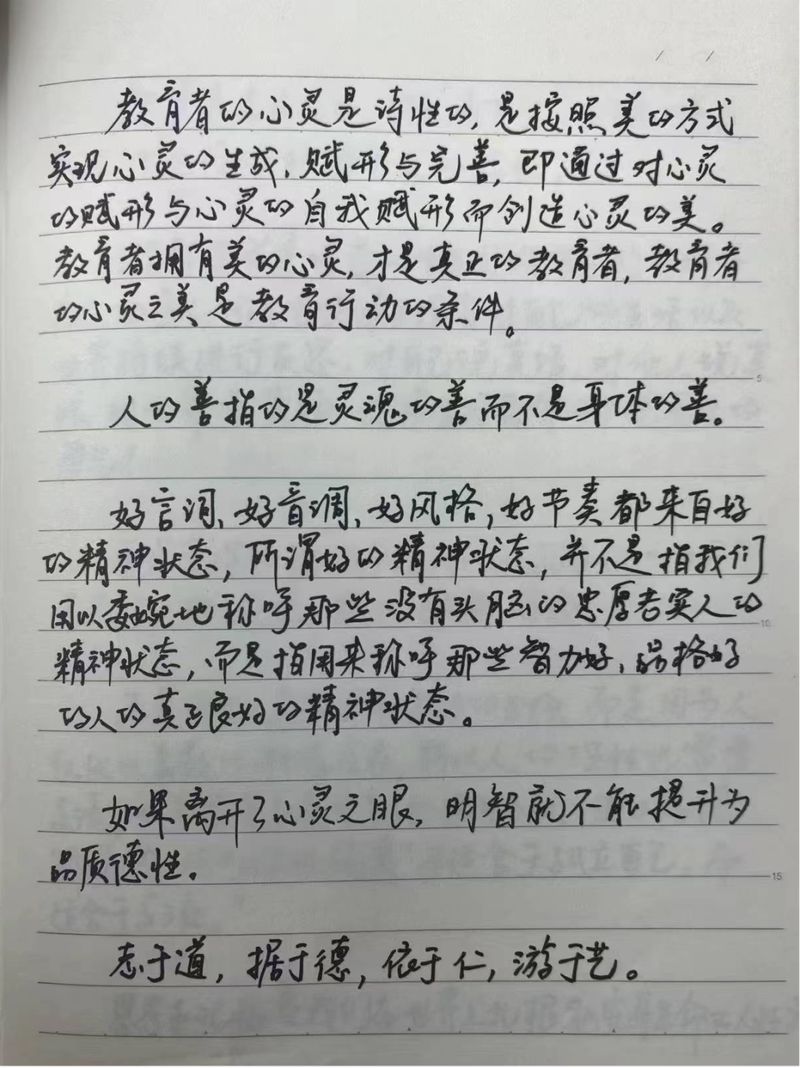 教育者的心灵是诗性的，是按照美的方式
实现心灵的生成、赋形与完善，即通过对心灵
的赋形与心灵的自我赋形而创造心灵的美。
教育者拥有美的心灵，才是真正的教育者，教育者
的心灵之美是教育行动的条件。
5
人的善指的是灵魂的善而不是身体的善。
好言词、好音调、好风格，好节奏都来自好
的精神状态，所谓好的精神状态，并不是指我们
用以委婉地称呼那些没有头脑的忠厚老实人的
10
精神状态，而是指用来称呼那些智力好、品格好
的人的真正良好的精神状态。
如果离开了心灵之眼，明智就不能提升为
品质德性。
15
志于道，据于德，依于仁，游于艺。